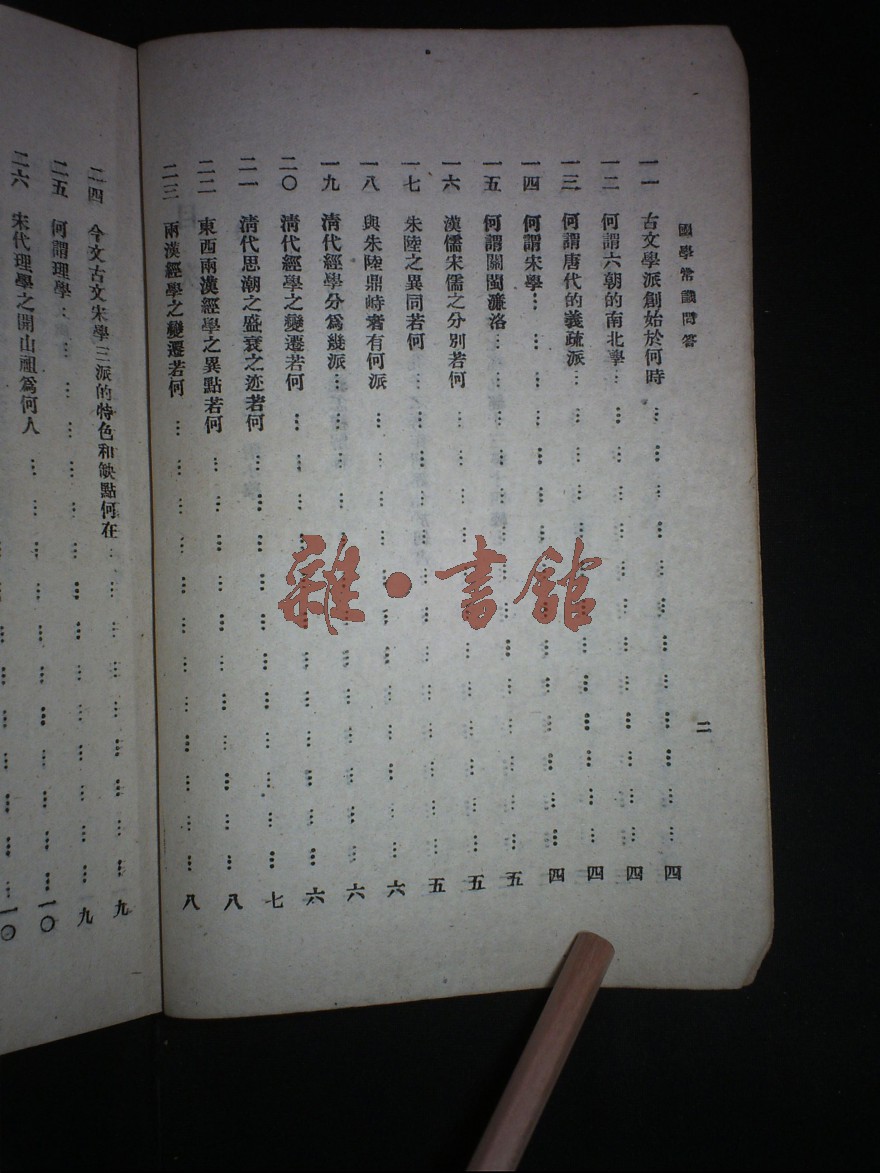 國學常識問答
二
一一 古文學派創始於何時 … 四
一二 何謂六朝的南北學 … 四
一三 何謂唐代的義疏派 … 四
一四 何謂宋學 … 四
一五 何謂關閩濂洛 … 五
一六 漢儒宋儒之分別若何 … 五
一七 朱陸之異同若何 … 五
一八 與朱陸鼎峙者有何派 … 六
一九 清代經學分爲幾派 … 六
二〇 清代經學之變遷若何 … 六
二一 清代思潮之盛衰之迹若何 … 七
二二 東西兩漢經學之異點若何 … 八
二三 兩漢經學之變遷若何 … 八
二四 今文古文宋學三派的特色和缺點何在 … 九
二五 何謂理學 … 九
二六 宋代理學之開山祖爲何人 … 一〇
一〇
雜·書館